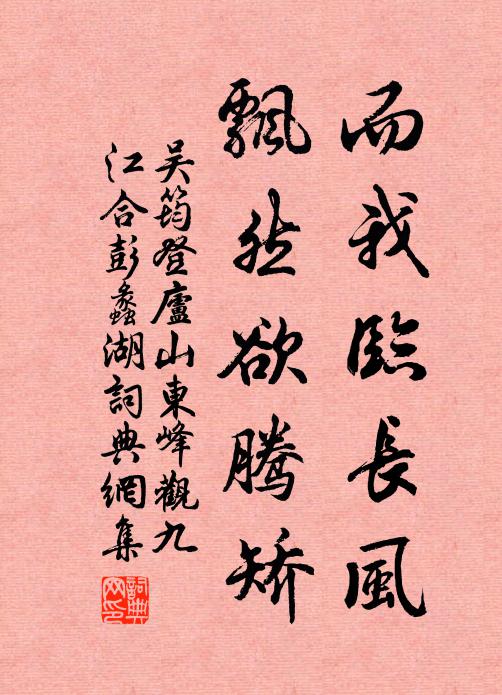 而我臨長風
飄然欲騰矯
吴筠登廬山東峰觀九
江合彭蠡湖詞典網集
詞典
网印